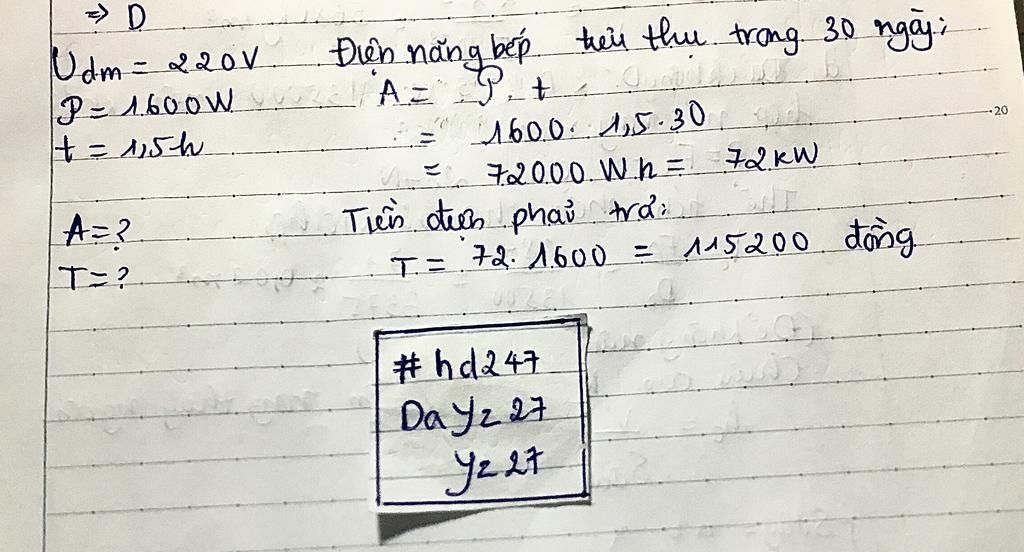 ⇒ D
Udm = 220V Điện năng bếp tiêu thụ trong 30 ngày:
P = 1600W A = P. t
t = 1,5h = 1600. 1,5.30
= 72000 Wh = 72kW
A = ? Tiền điện phải trả:
T = ? T = 72. 1600 = 115200 đồng
20
# hd247
Da yz 27
yz 27